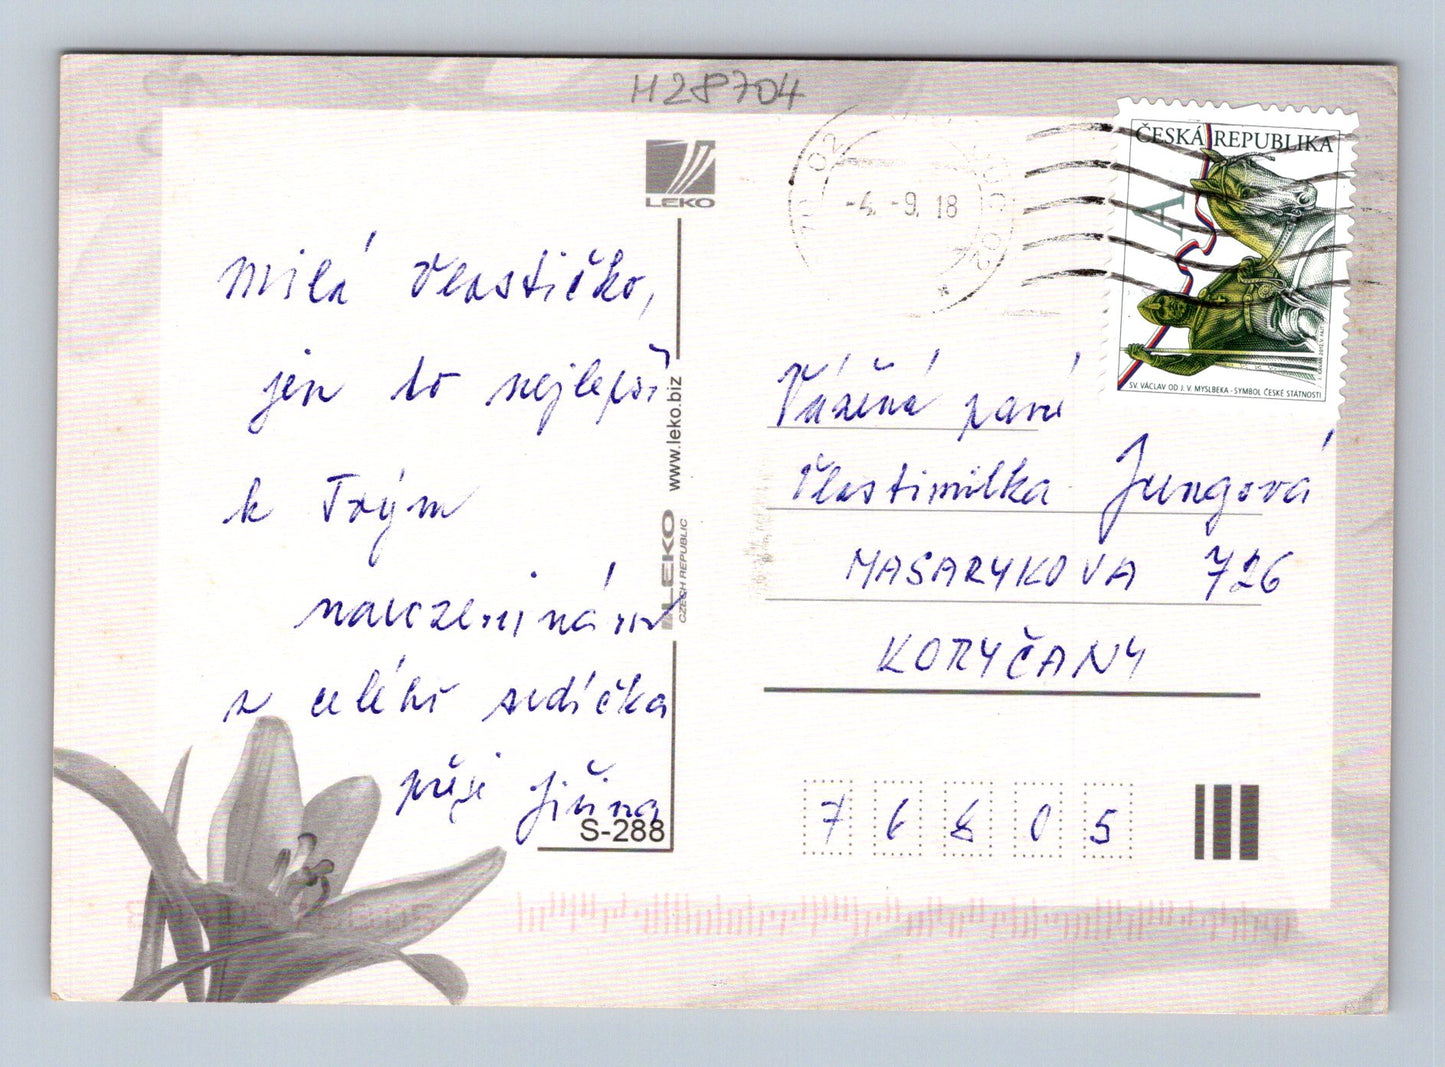 H28704
LEKO
Milá Vlastičko,
jen to nejlepší
k Tvým
narozeninám
z celého srdíčka
přeje Jiřina
S-288
www.leko.biz
LEKO
CZECH REPUBLIC
02
-4. -9. 18
ČESKÁ REPUBLIKA
A
SV. VÁCLAV OD J. V. MYSLBEKA - SYMBOL ČESKÉ STÁTNOSTI
Vážená paní
Vlastimilka Jungová
MASARYKOVA 726
KORYČANY
7 6 8 0 5